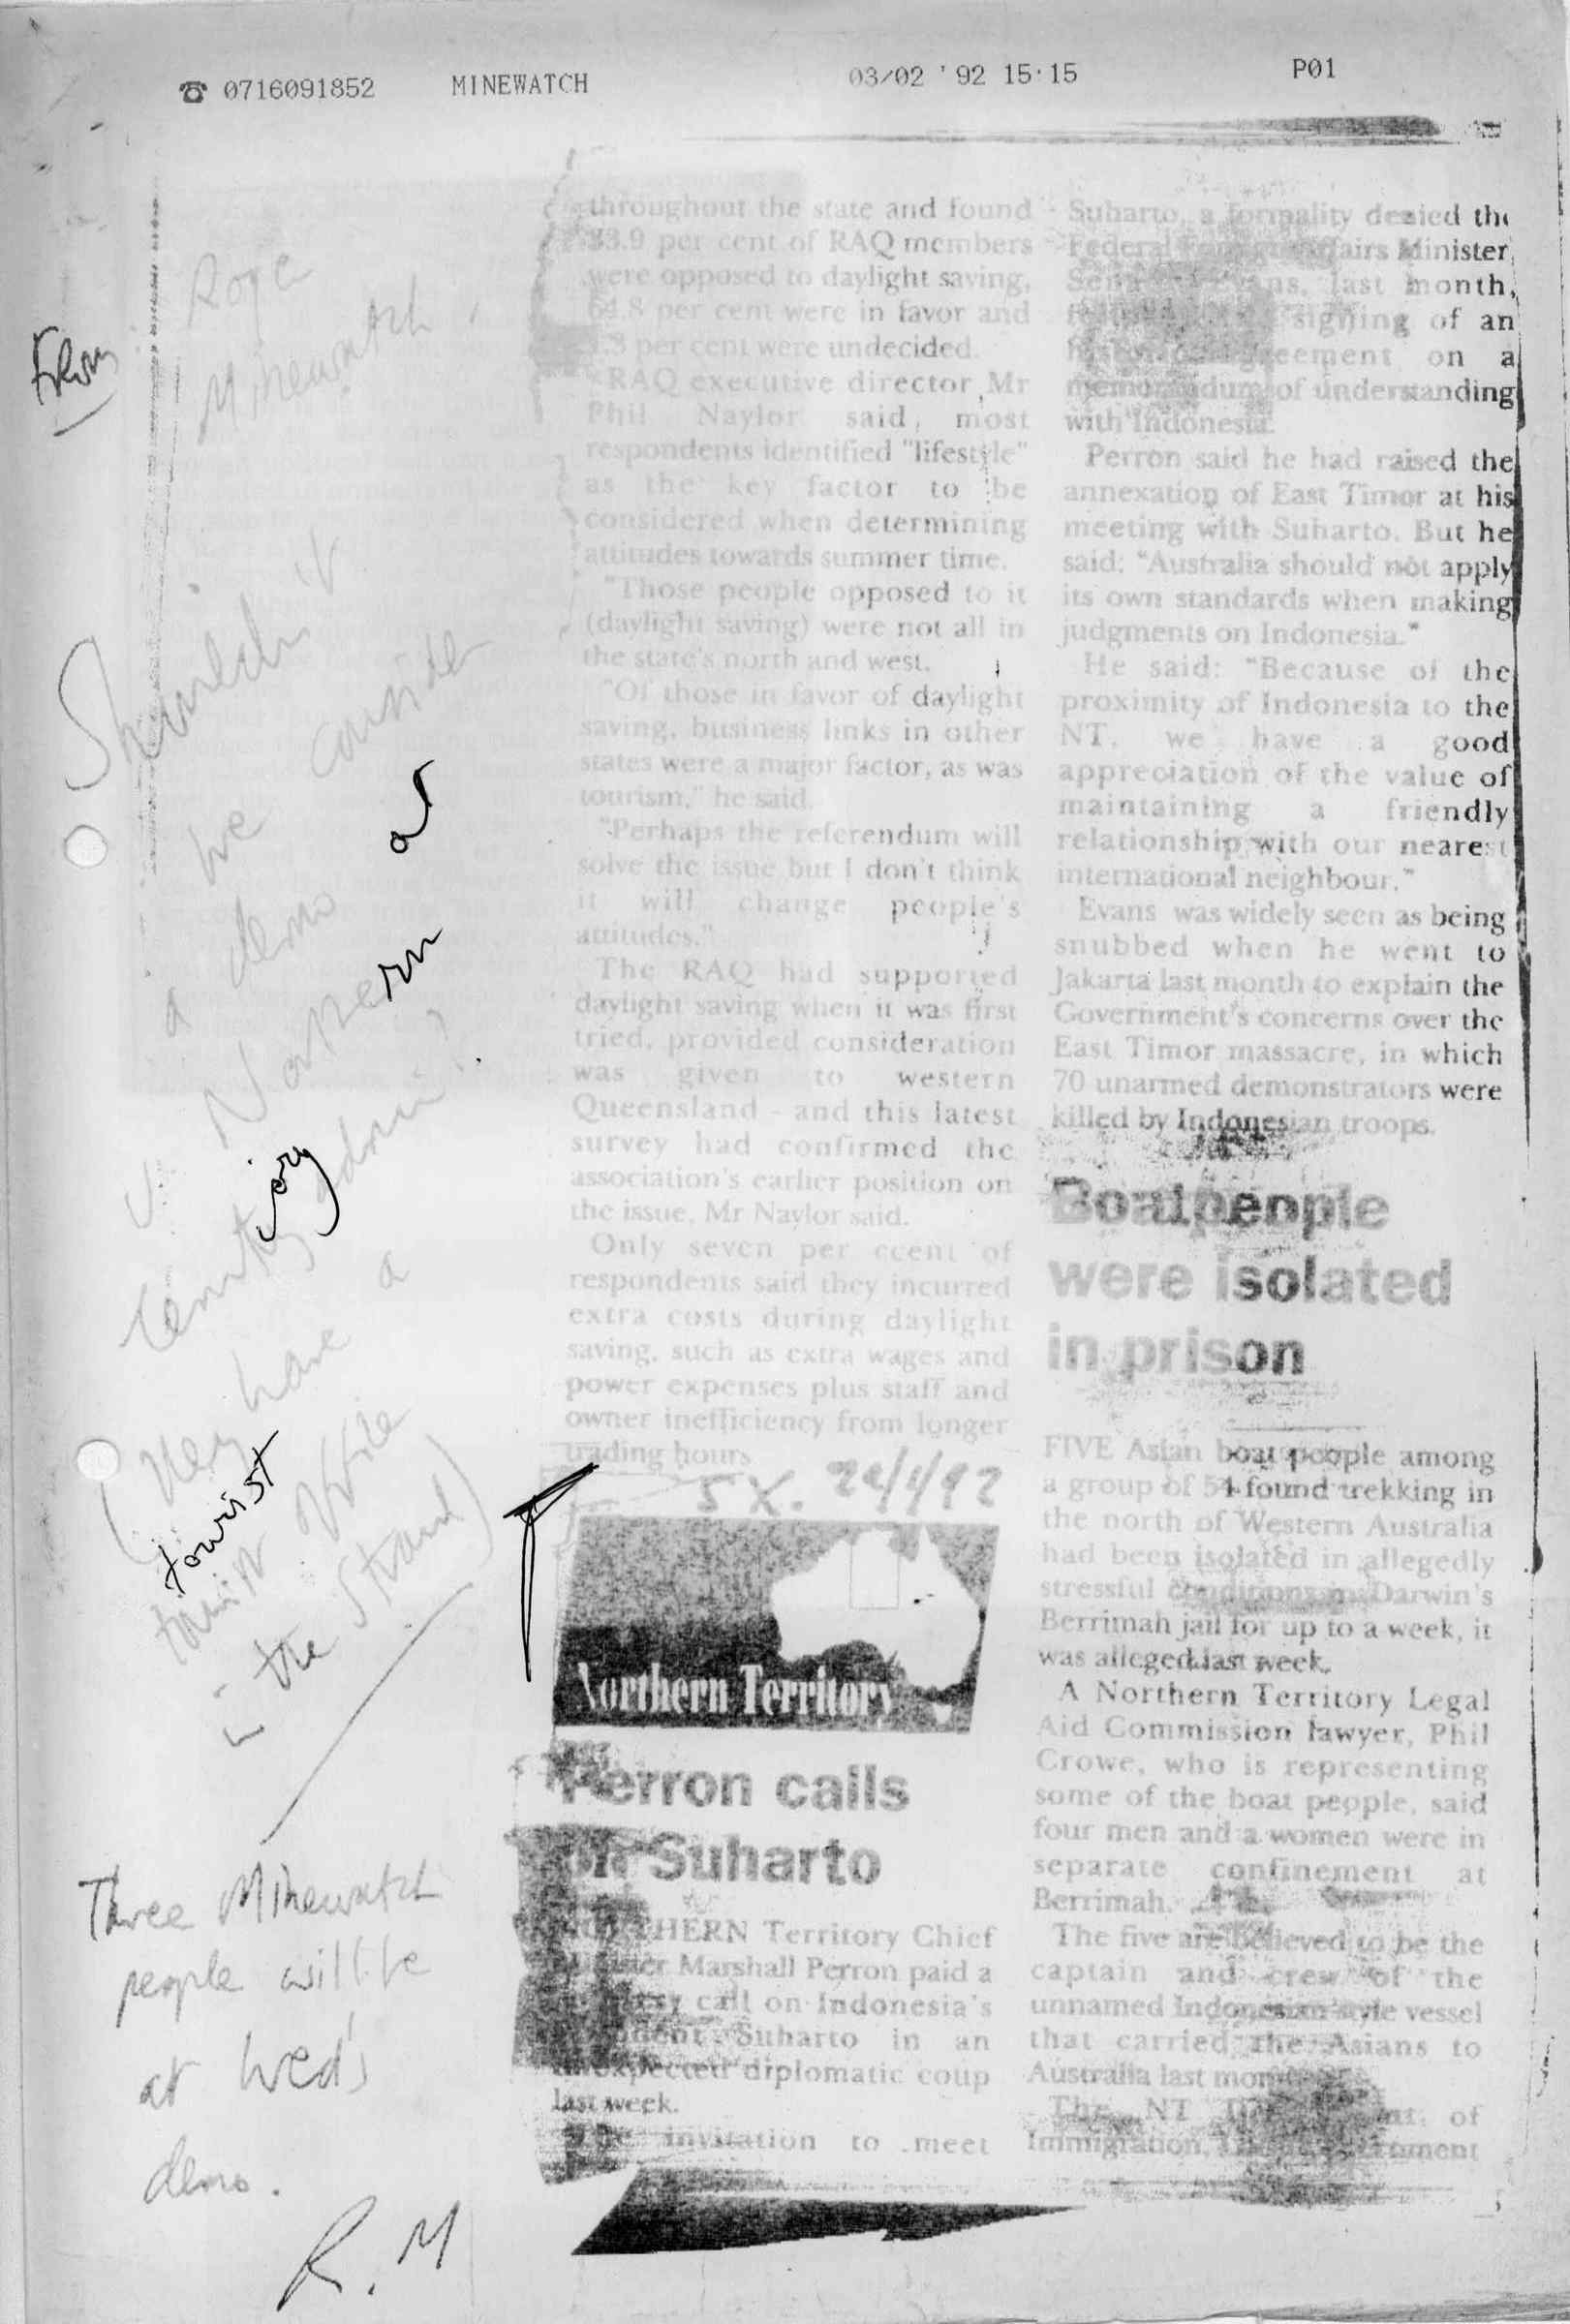 ☎ 0716091852 MINEWATCH 03/02 '92 15:15 P01
From
Roge
Minewatch
Shouldn't
we consider
a demo at
Northern
Territory admin?
(They have a
tourist office
in the Strand)
tourist
Three Minewatch
people will be
at Wed's
demo.
R.M
throughout the state and found
33.9 per cent of RAQ members
were opposed to daylight saving,
64.8 per cent were in favor and
1.3 per cent were undecided.
RAQ executive director, Mr
Phil Naylor said, most
respondents identified "lifestyle"
as the key factor to be
considered when determining
attitudes towards summer time.
"Those people opposed to it
(daylight saving) were not all in
the state's north and west.
"Of those in favor of daylight
saving, business links in other
states were a major factor, as was
tourism," he said.
"Perhaps the referendum will
solve the issue but I don't think
it will change people's
attitudes."
The RAQ had supported
daylight saving when it was first
tried, provided consideration
was given to western
Queensland - and this latest
survey had confirmed the
association's earlier position on
the issue, Mr Naylor said.
Only seven per ccent of
respondents said they incurred
extra costs during daylight
saving, such as extra wages and
power expenses plus staff and
owner inefficiency from longer
trading hours
SX. 22/1/92
Northern Territory
Perron calls
on Suharto
NORTHERN Territory Chief
Minister Marshall Perron paid a
courtesy call on Indonesia's
President Suharto in an
unexpected diplomatic coup
last week.
The invitation to meet
Suharto, a formality denied the
Federal Foreign Affairs Minister,
Senator Evans, last month,
signing of an
historic agreement on a
memorandum of understanding
with Indonesia.
Perron said he had raised the
annexation of East Timor at his
meeting with Suharto. But he
said: "Australia should not apply
its own standards when making
judgments on Indonesia."
He said: "Because of the
proximity of Indonesia to the
NT, we have a good
appreciation of the value of
maintaining a friendly
relationship with our nearest
international neighbour."
Evans was widely seen as being
snubbed when he went to
Jakarta last month to explain the
Government's concerns over the
East Timor massacre, in which
70 unarmed demonstrators were
killed by Indonesian troops.
Boatpeople
were isolated
in prison
FIVE Asian boat people among
a group of 54 found trekking in
the north of Western Australia
had been isolated in allegedly
stressful conditions in Darwin's
Berrimah jail for up to a week, it
was alleged last week.
A Northern Territory Legal
Aid Commission lawyer, Phil
Crowe, who is representing
some of the boat people, said
four men and a women were in
separate confinement at
Berrimah.
The five are believed to be the
captain and crew of the
unnamed Indonesian-style vessel
that carried the Asians to
Australia last month.
The NT of
Immigration,